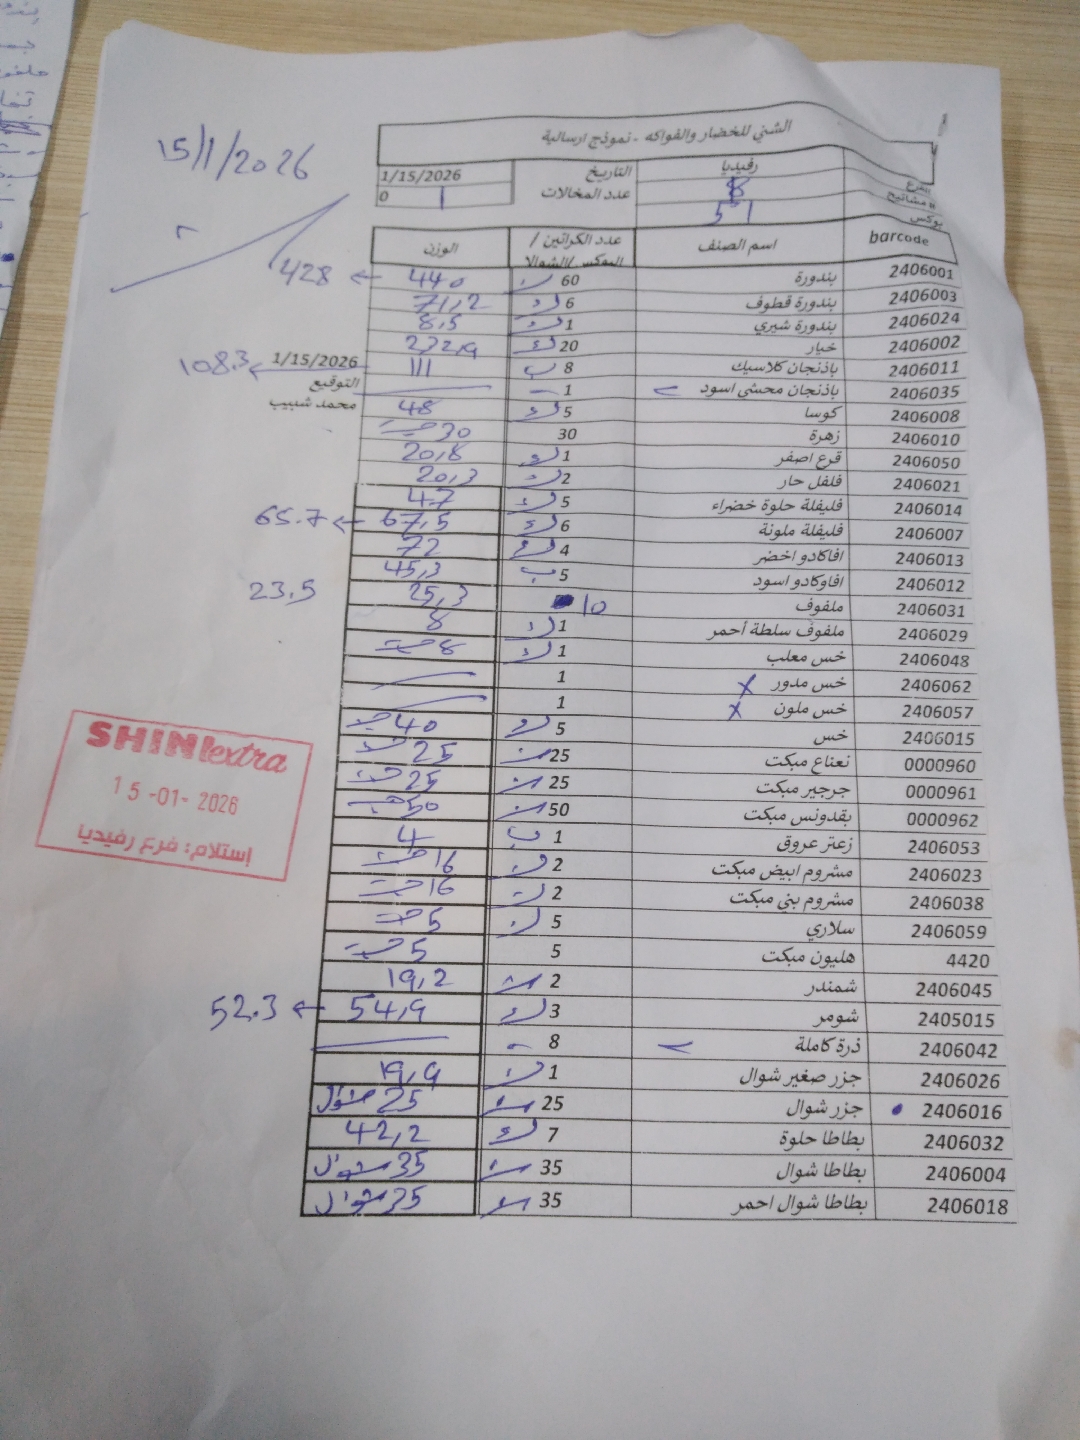 15/1/2026
الشني للخضار والفواكه - نموذج ارسالية
الفرع رفيديا التاريخ 1/15/2026
# مشاتيح 8 عدد المخالات 0 1
بوكس 51
barcode اسم الصنف عدد الكراتين / البوكس/الشوالا الوزن
2406001 بندورة 60 440 ← 428
2406003 بندورة قطوف 6 71,2
2406024 بندورة شيري 1 8,5
2406002 خيار 20 232,9
2406011 باذنجان كلاسيك 8 111 ← 108.3
1/15/2026
2406035 باذنجان محشي اسود 1
التوقيع
2406008 كوسا 5 48
محمد شبيب
2406010 زهرة 30 30 حبة
2406050 قرع اصفر 1 20,8
2406021 فلفل حار 2 20,3
2406014 فليفلة حلوة خضراء 5 47
2406007 فليفلة ملونة 6 67,5 ← 65.7
2406013 افاكادو اخضر 4 72
2406012 افاوكادو اسود 5 45,3
2406031 ملفوف 10 25,3 23.5
2406029 ملفوف سلطة أحمر 1 8
2406048 خس معلب 1 8 حبة
2406062 خس مدور x 1
2406057 خس ملون x 1
2406015 خس 5 40 حبة
0000960 نعناع مبكت 25 25 حبة
0000961 جرجير مبكت 25 25 حبة
0000962 بقدونس مبكت 50 50 حبة
2406053 زعتر عروق 1 4
2406023 مشروم ابيض مبكت 2 16 حبة
2406038 مشروم بني مبكت 2 16 حبة
2406059 سلاري 5 5 حبة
4420 هليون مبكت 5 5 حبة
2406045 شمندر 2 19,2
2405015 شومر 3 54,9 ← 52.3
2406042 ذرة كاملة 8
2406026 جزر صغير شوال 1 19,9
2406016 جزر شوال 25 25 شوال
2406032 بطاطا حلوة 7 42,2
2406004 بطاطا شوال 35 35 شوال
2406018 بطاطا شوال احمر 35 35 شوال
SHINI extra
15-01-2026
إستلام: فرع رفيديا